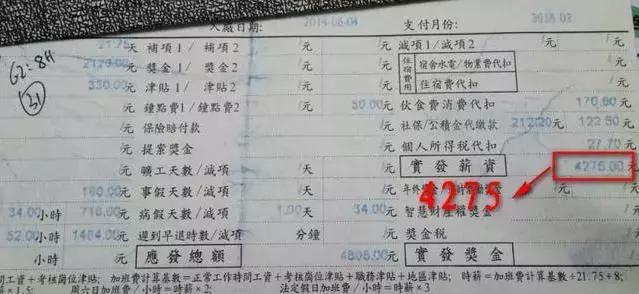 入廠日期: 2014-06-04 支付月份: 2016.03
21.75 天 補項1/補項2 /元 減項1/減項2 /元
2170.00 元 獎金1/獎金2 /元 住宿費用 宿舍水電/物業費代扣 /元
330.00 元 津貼1/津貼2 /元 住宿費代扣 /元
/元 鐘點費1/鐘點費2 50.00 /元 伙食費消費代扣 170.60 /元
/元 保險賠付款 /元 社保/公積金代繳款 212.20 元 122.50 /元
/元 提案獎金 /元 個人所得稅代扣 27.70 /元
/元 曠工天數/減項 /天 /元 實發薪資 4275.00 /元
160.00 /元 事假天數/減項 /天 /元 /元
34.00 小時 716.00 /元 病假天數/減項 1.00 天 34.00 /元 智慧財產權獎金
52.00 小時 1464.00 /元 遲到早退時數/減項 分鐘 /元 獎金稅 /元
小時 /元 應發總額 4808.00 /元 實發獎金 /元
4275
62:8H
31
間工資+考核崗位津貼; 加班費計算基數=正常工作時間工資+考核崗位津貼+職務津貼+地區津貼; 時薪=加班費計算基數÷21.75÷8;
×1.5; 周六日加班費/小時=時薪×2; 法定假日加班費/小時=時薪×3